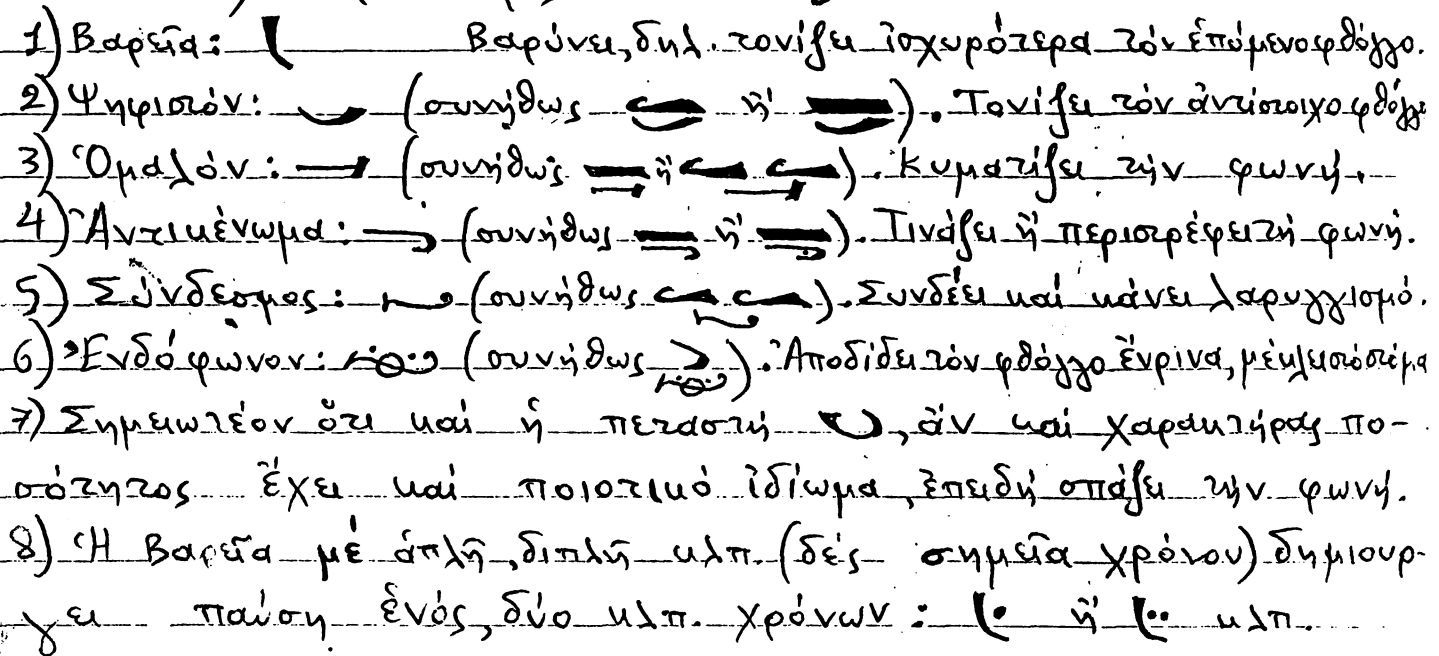 1) Βαρεῖα: Βαρύνει, δηλ. τονίζει ἰσχυρότερα τόν ἑπόμενο φθόγγο.
2) Ψηφιστόν: (συνήθως ἤ ). Τονίζει τόν ἀντίστοιχο φθόγγο
3) Ὁμαλόν: (συνήθως ἤ ). Κυματίζει τήν φωνή.
4) Ἀντικένωμα: (συνήθως ἤ ). Τινάζει ἤ περιστρέφει τή φωνή.
5) Σύνδεσμος: (συνήθως ). Συνδέει καί κάνει λαρυγγισμό.
6) Ἐνδόφωνον: (συνήθως ). Ἀποδίδει τόν φθόγγο ἔνρινα, μέ κλειστό στόμα
7) Σημειωτέον ὅτι καί ἡ πεταστή , ἄν καί χαρακτήρας πο-
σότητος ἔχει καί ποιοτικό ἰδίωμα, ἐπειδή σπάζει τήν φωνή.
8) Ἡ Βαρεῖα μέ ἁπλῆ, διπλῆ κλπ. (δές σημεῖα χρόνου) δημιουρ-
γει παύση ἑνός, δύο κλπ. χρόνων: ἤ κλπ.